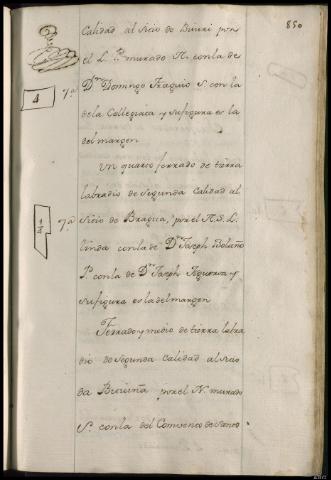 850
Calidad al Sitio de Biveri por
el L. murado N. con la de
7.ª Dn. Domingo Fraguio S. con la
4
de la Collegiata y su figura es la
del margen
Un quarto ferrado de tierra
labradio de Segunda Calidad al
7.ª Sitio de Bragua, por el N. S. L.
1/2
linda con la de Dn. Joseph Bolaño
P. con la de Dn. Joseph Figueroa y
su figura es la del margen
Ferrado y medio de tierra labra
dio de Segunda Calidad al Sitio
da por el N. murado
S. con la del Convento de